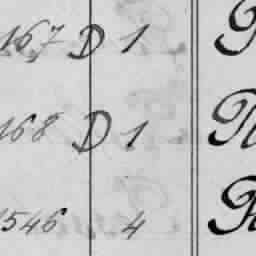 167 D 1
168 D 1
1546 4